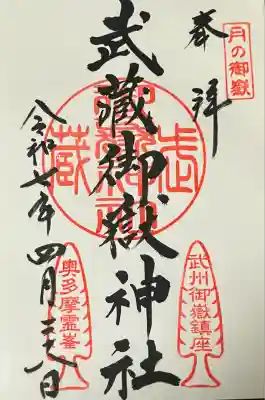 月の御嶽
奉拝
武州御嶽鎮座
武蔵御嶽神社
令和七年四月日
奥多摩霊峯